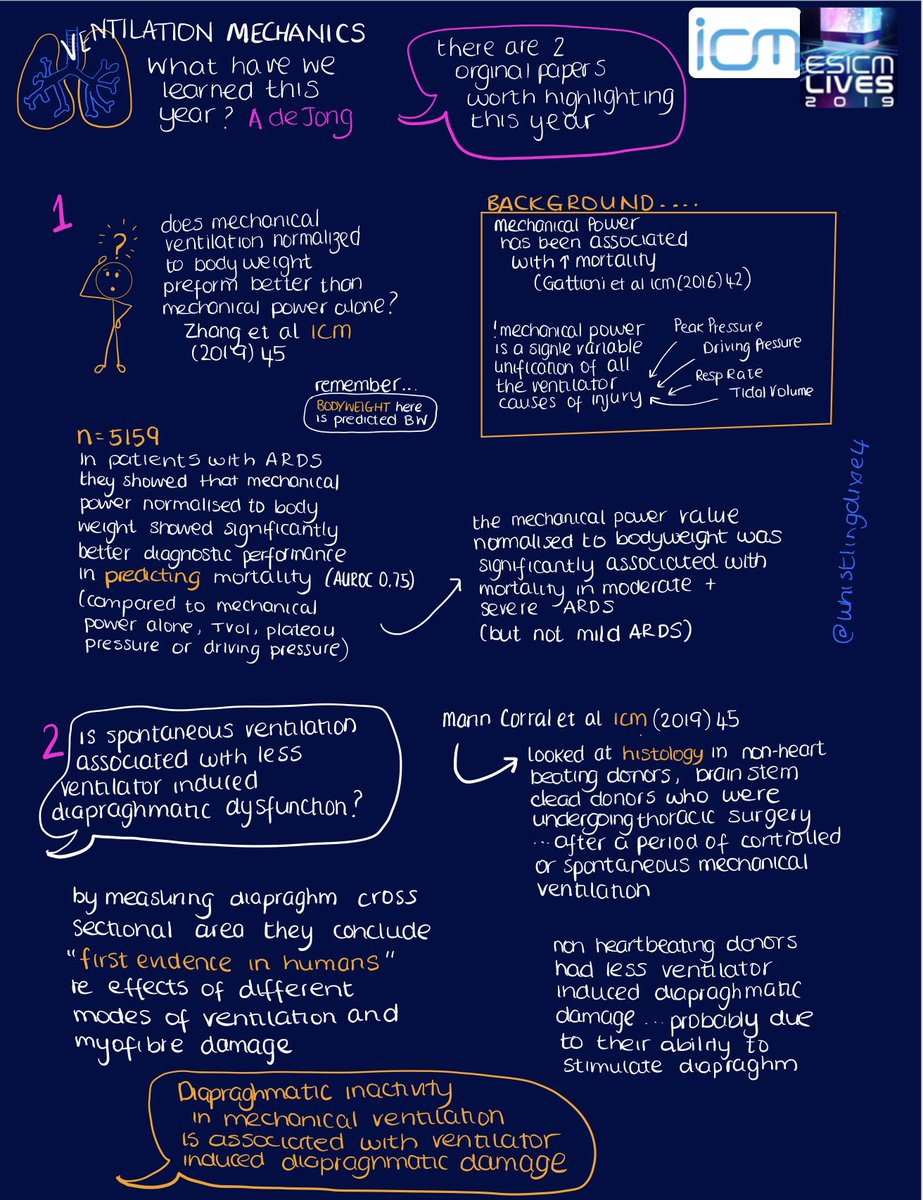 VENTILATION MECHANICS
what have we
learned this
year? A de Jong
there are 2
orginal papers
worth highlighting
this year
icm
ESICM
LIVES
2019
1
?
does mechanical
ventilation normalized
to body weight
preform better than
mechanical power alone?
Zhang et al icm
(2019) 45
BACKGROUND....
mechanical Power
has been associated
with ↑ mortality
(Gattioni et al icm (2016) 42)
!mechanical power
is a signle variable
unification of all
the ventilator
causes of injury
Peak Pressure
Driving Pressure
Resp Rate
Tidal Volume
remember...
BODYWEIGHT here
is predicted BW
n=5159
In patients with ARDS
they showed that mechanical
power normalised to body
weight showed significantly
better diagnostic performance
in predicting mortality (AUROC 0.75)
(compared to mechanical
power alone, TVol, plateau
pressure or driving pressure)
the mechanical power value
normalised to bodyweight was
significantly associated with
mortality in moderate +
severe ARDS
(but not mild ARDS)
@whistlingdixie4
2
is spontaneous ventilation
associated with less
ventilator induced
diapraghmatic dysfunction?
Marin Corral et al icm (2019) 45
looked at histology in non-heart
beating donors, brain stem
dead donors who were
undergoing thoracic surgery
... after a period of controlled
or spontaneous mechanical
ventilation
by measuring diapraghm cross
sectional area they conclude
"first evidence in humans"
re effects of different
modes of ventilation and
myofibre damage
non heartbeating donors
had less ventilator
induced diapraghmatic
damage ... probably due
to their ability to
stimulate diapraghm
Diapraghmatic inactivity
in mechanical ventilation
is associated with ventilator
induced diapraghmatic damage